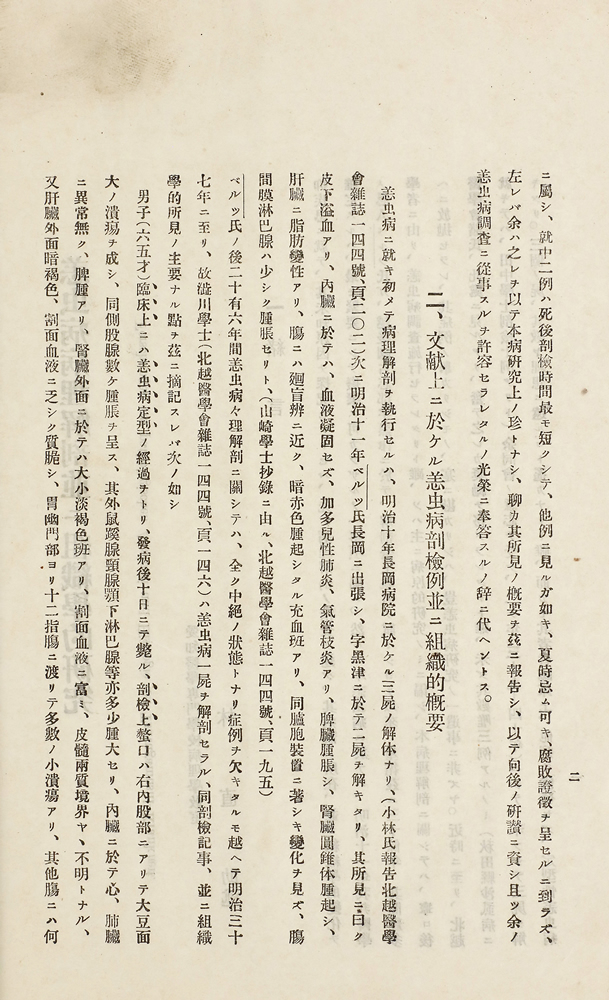 二
ニ屬シ、就中二例ハ死後剖檢時間最モ短クシテ、他例ニ見ルガ如キ、夏時忌ム可キ、腐敗證徵ヲ呈セルニ到ラズ、
左レバ余ハ之レヲ以テ本病硏究上ノ珍トナシ、聊カ其所見ノ概要ヲ茲ニ報告シ、以テ向後ノ硏讃ニ資シ且ツ余ノ
恙虫病調査ニ從事スルヲ許容セラレタルノ光榮ニ奉答スルノ辞ニ代ヘントス。
二、文献上ニ於ケル恙虫病剖檢例並ニ組織的概要
恙虫病ニ就キ初メテ病理解剖ヲ執行セルハ、明治十年長岡病院ニ於ケル三屍ノ解体ナリ、(小林氏報告北越醫學
會雜誌一四四號、頁二〇二)次ニ明治十一年ベルツ氏長岡ニ出張シ、字黑津ニ於テ二屍ヲ解キタリ、其所見ニ曰ク
皮下溢血アリ、內臟ニ於テハ、血液凝固セズ、加多兒性肺炎、氣管枝炎アリ、脾臟腫脹シ、腎臟圓錐体腫起シ、
肝臟ニ脂肪變性アリ、膓ニハ廻盲辨ニ近ク、暗赤色腫起シタル充血斑アリ、同臚胞裝置ニ著シキ變化ヲ見ズ、膓
間膜淋巴腺ハ少シク腫脹セリト、(山崎學士抄錄ニ由ル、北越醫學會雜誌一四四號、頁一九五)
ベルツ氏ノ後二十有六年間恙虫病々理解剖ニ關シテハ、全ク中絶ノ狀態トナリ症例ヲ欠キタルモ越ヘテ明治三十
七年ニ至リ、故澁川學士(北越醫學會雜誌一四四號、頁一四六)ハ恙虫病一屍ヲ解剖セラル、同剖檢記事、並ニ組織
學的所見ノ主要ナル點ヲ茲ニ摘記スレバ次ノ如シ
男子(六五才)臨床上ニハ恙虫病定型ノ經過ヲトリ、發病後十日ニテ斃ル、剖檢上螫口ハ右內股部ニアリテ大豆面
大ノ潰瘍ヲ成シ、同側股腺數ケ腫脹ヲ呈ス、其外鼠蹊腺頸腺顎下淋巴腺等亦多少腫大セリ、內臟ニ於テ心、肺臟
ニ異常無ク、脾腫アリ、腎臟外面ニ於テハ大小淡褐色斑アリ、割面血液ニ富ミ、皮髓兩質境界ヤヽ不明トナル、
又肝臟外面暗褐色、割面血液ニ乏シク質脆シ、胃幽門部ヨリ十二指膓ニ渡リテ多數ノ小潰瘍アリ、其他膓ニハ何